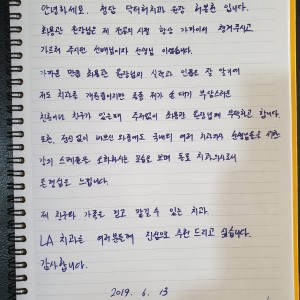 안녕하세요. 청담 닥터허치과 원장 허봉천 입니다.
최용관 원장님은 제 전공의 시절 항상 가까이서 챙겨주시고
가르쳐 주시던 선배님이자 선생님 이셨습니다.
가까운 만큼 최용관 원장님의 실력과 인품은 잘 알기에
저도 치과를 개원중이지만 목동 제가 손 대기 부담스러운
진료나 친구가 있는데 주저없이 최용관 원장님께 부탁하곤 합니다.
또한, 정신없이 바쁘신 와중에도 국내외 여러 치과의사 선생님들은
강의 스케쥴도 소화하시는 모습은 보며 동료 치과의사로서
존경심을 느낍니다.
제 친구와 가족을 믿고 맡길 수 있는 치과.
LA 치과를 여러분들께 진심으로 추천 드리고 싶습니다.
감사합니다.
2019. 6. 13